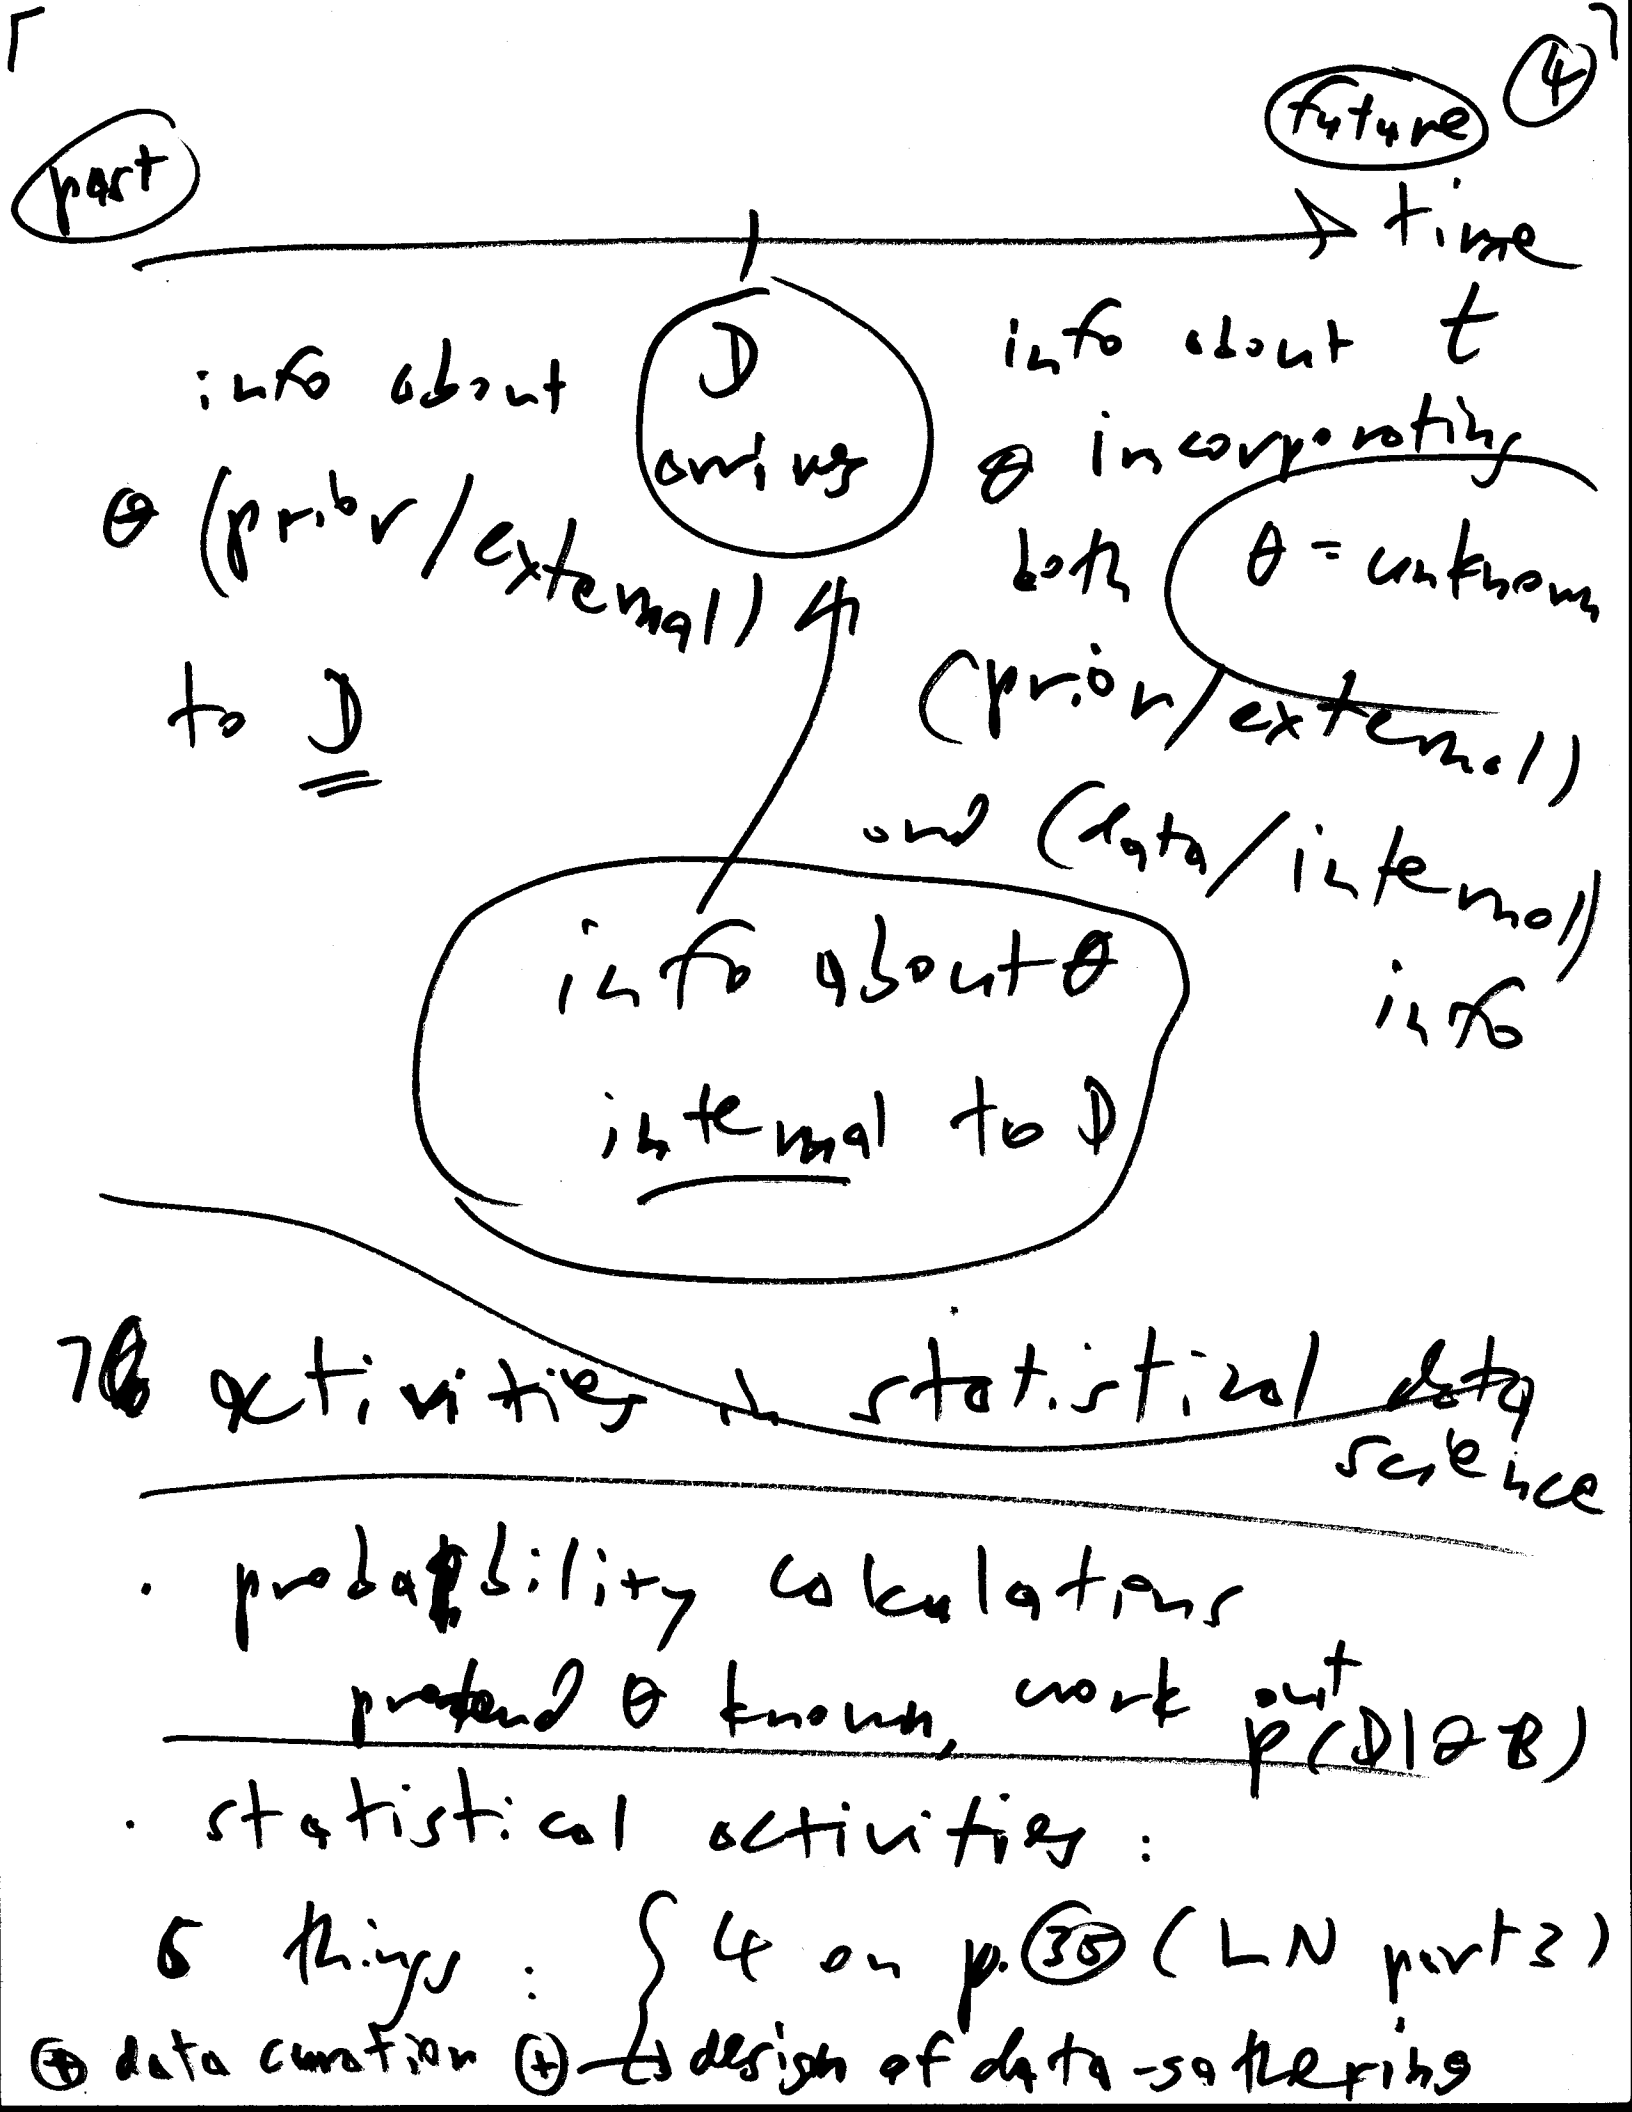 ④
past
future
time
t
info about
θ (prior/external)
to D
D
arrives
info about
θ incorporating
both
θ = unknown
(prior/external)
and (data/internal)
info
info about θ
internal to D
activities in statistical data
science
· probability calculations
pretend θ known, work out
p(D|θ B)
· statistical activities:
6 things : { 4 on p. 35 (LN part 3)
⊕ data curation ⊕ → design of data-gathering